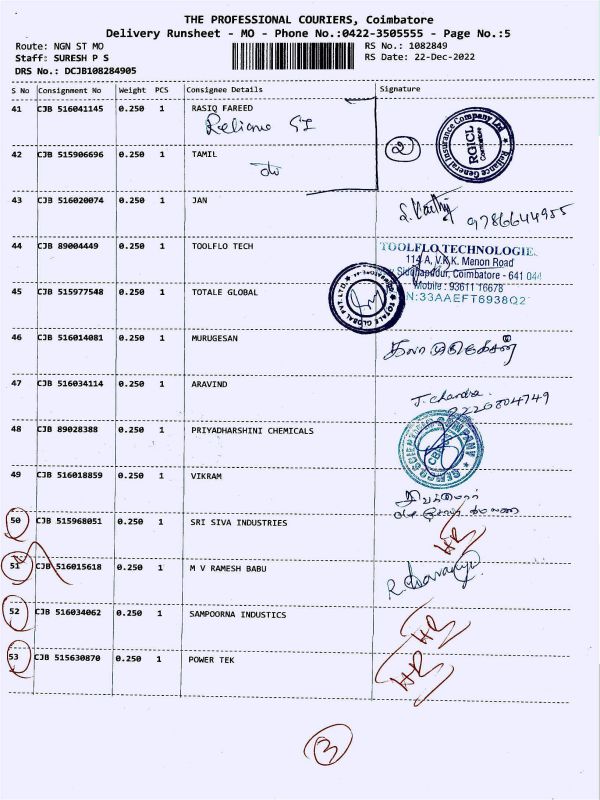 THE PROFESSIONAL COURIERS, Coimbatore
Delivery Runsheet - MO - Phone No.:0422-3505555 - Page No.:5
Route: NGN ST MO
RS No.: 1082849
Staff: SURESH P S
RS Date: 22-Dec-2022
DRS No.: DCJB108284905
S No Consignment No Weight PCS Consignee Details Signature
41 CJB 516041145 0.250 1 RASIQ FAREED
Reliance GI
2
Reliance General Insurance Company Ltd
RGICL
Coimbatore
42 CJB 515906696 0.250 1 TAMIL
do
43 CJB 516020074 0.250 1 JAN
9786644955
44 CJB 89004449 0.250 1 TOOLFLO TECH
TOOLFLO TECHNOLOGIE
114 A, V.K.K. Menon Road
Coimbatore - 641 044
Mobile : 93611 16678
N:33AAEFT6938Q2
45 CJB 515977548 0.250 1 TOTALE GLOBAL
TOTALE GLOBAL PVT. LTD.
46 CJB 516014081 0.250 1 MURUGESAN
47 CJB 516034114 0.250 1 ARAVIND
J. Chandra
2220804749
48 CJB 89028388 0.250 1 PRIYADHARSHINI CHEMICALS
49 CJB 516018859 0.250 1 VIKRAM
50 CJB 515968051 0.250 1 SRI SIVA INDUSTRIES
HR
51 CJB 516015618 0.250 1 M V RAMESH BABU
52 CJB 516034062 0.250 1 SAMPOORNA INDUSTICS
HR
53 CJB 515630870 0.250 1 POWER TEK
HR
3